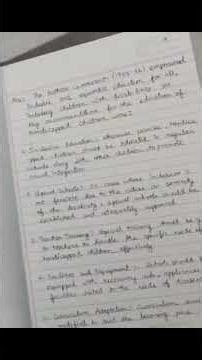 Ans: The Kothari Commission (1964-66) emphasized
inclusive and equitable education for all,
including children with disabilities.
Key recommendations for the education of
handicapped children were:
1. Inclusive Education
should be educated in regular
schools along with other children to promote
social integration.
2. Special Schools: In cases where inclusion is
not feasible due to the nature or severity
of the disability, special schools should be
established and adequately supported.
3. Teacher Training: Special training must be
to teachers to handle the specific needs of
handicapped children effectively.
4. Facilities and Equipment: Schools should be
equipped with necessary aids, appliances
facilities suited to the needs of
5. Curriculum Adaptation: Curriculum
modified to suit the learning pace